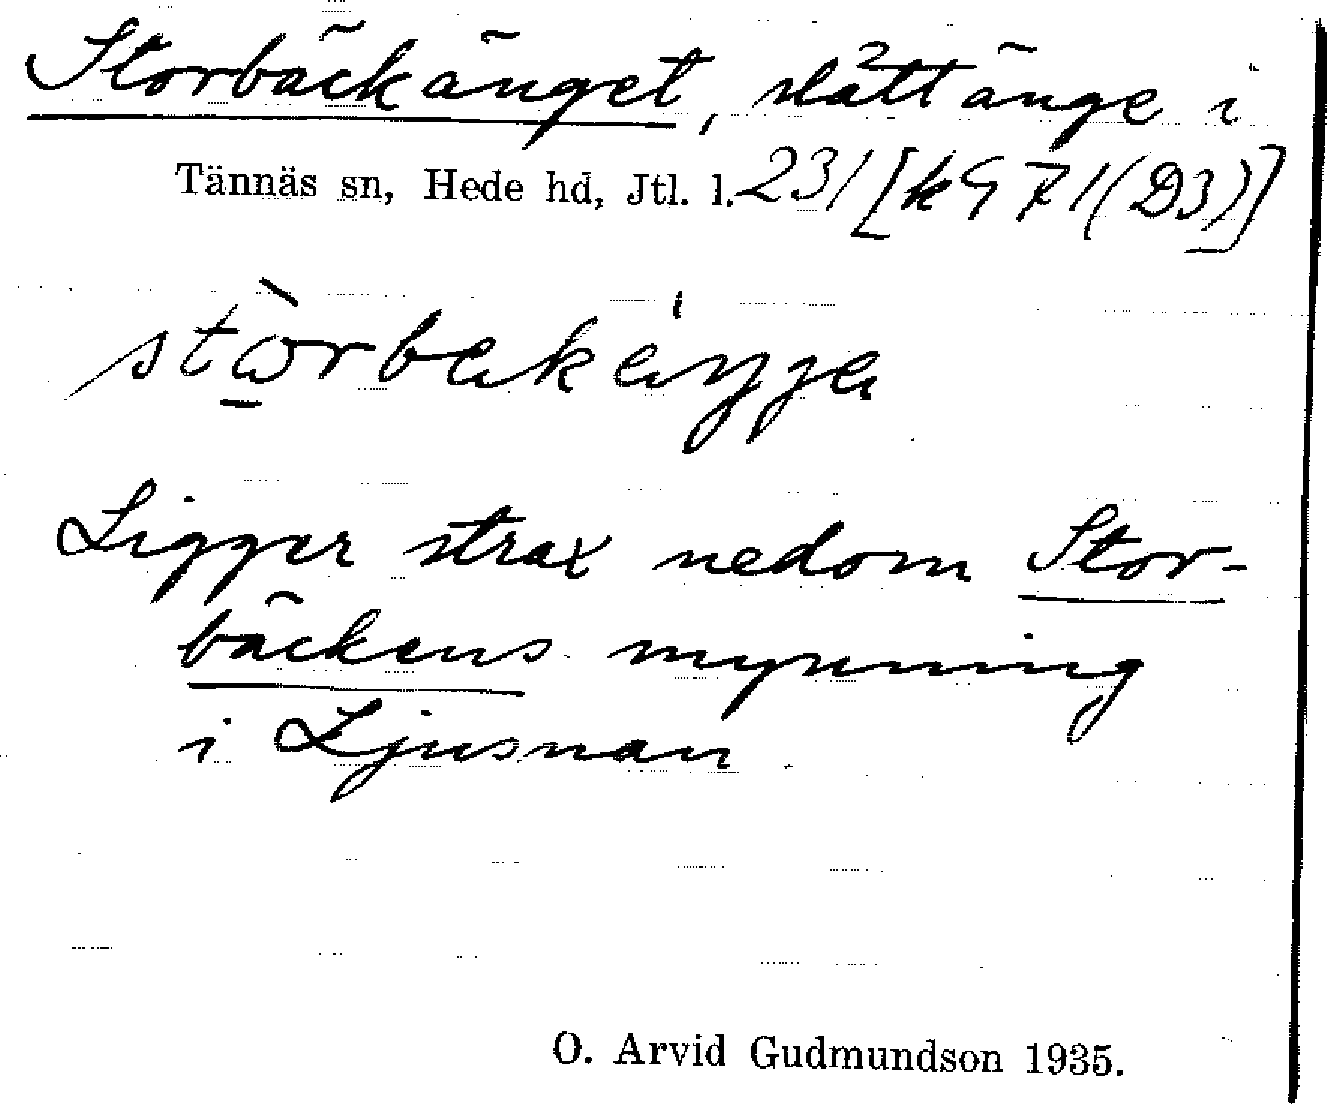 Storbäckänget, slåttänge i
Tännäs sn, Hede hd, Jtl. l. 231 [k971(D3)]
Ligger strax nedom Stor-
bäckens mynning
i Ljusnan
O. Arvid Gudmundson 1935.